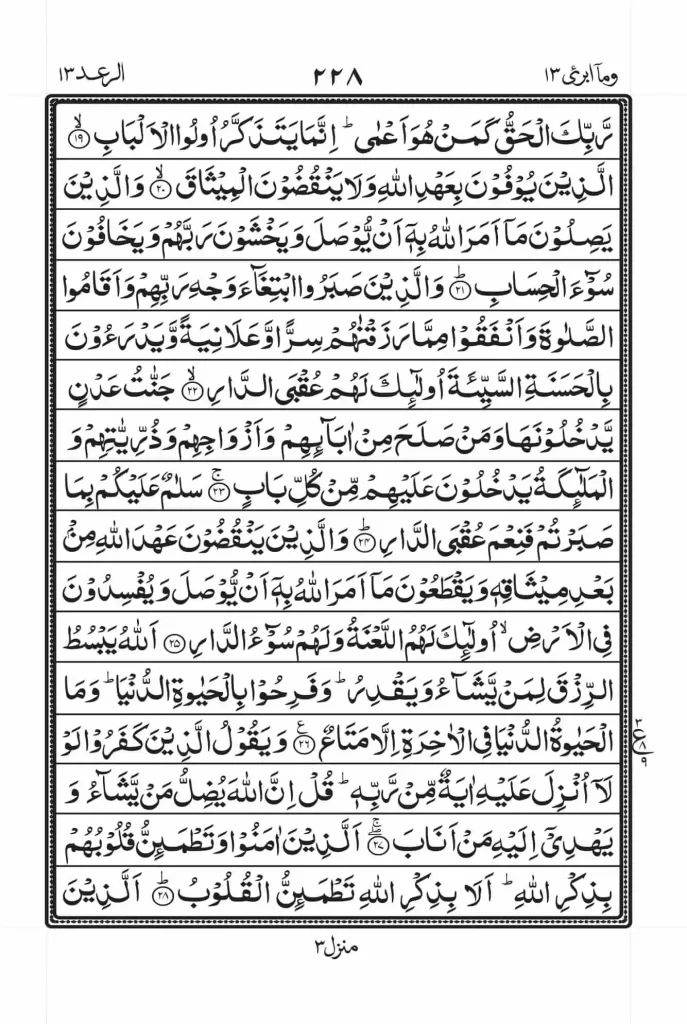 وماۤ ابرئ ١٣ ٢٢٨ الرعد ١٣
رَّبِّكَ الْحَقُّ كَمَنْ هُوَ اَعْمٰى ؕ اِنَّمَا يَتَذَكَّرُ اُولُوا الْاَلْبَابِ ۙ‏﴿۱۹﴾
الَّذِيْنَ يُوْفُوْنَ بِعَهْدِ اللّٰهِ وَلَا يَنْقُضُوْنَ الْمِيْثَاقَ ۙ‏﴿۲۰﴾ وَالَّذِيْنَ
يَصِلُوْنَ مَاۤ اَمَرَ اللّٰهُ بِهٖۤ اَنْ يُّوْصَلَ وَيَخْشَوْنَ رَبَّهُمْ وَيَخَافُوْنَ
سُوْٓءَ الْحِسَابِ ؕ‏﴿۲۱﴾ وَالَّذِيْنَ صَبَرُوا ابْتِغَآءَ وَجْهِ رَبِّهِمْ وَاَقَامُوا
الصَّلٰوةَ وَاَنْفَقُوْا مِمَّا رَزَقْنٰهُمْ سِرًّا وَّعَلَانِيَةً وَّيَدْرَءُوْنَ
بِالْحَسَنَةِ السَّيِّئَةَ اُولٰٓئِكَ لَهُمْ عُقْبَى الدَّارِ ۙ‏﴿۲۲﴾ جَنّٰتُ عَدْنٍ
يَّدْخُلُوْنَهَا وَمَنْ صَلَحَ مِنْ اٰبَآئِهِمْ وَاَزْوَاجِهِمْ وَذُرِّيّٰتِهِمْ وَ
الْمَلٰٓئِكَةُ يَدْخُلُوْنَ عَلَيْهِمْ مِّنْ كُلِّ بَابٍ ۚ‏﴿۲۳﴾ سَلٰمٌ عَلَيْكُمْ بِمَا
صَبَرْتُمْ فَنِعْمَ عُقْبَى الدَّارِ ؕ‏﴿۲۴﴾ وَالَّذِيْنَ يَنْقُضُوْنَ عَهْدَ اللّٰهِ مِنْۢ
بَعْدِ مِيْثَاقِهٖ وَيَقْطَعُوْنَ مَاۤ اَمَرَ اللّٰهُ بِهٖۤ اَنْ يُّوْصَلَ وَيُفْسِدُوْنَ
فِى الْاَرْضِ ۙ اُولٰٓئِكَ لَهُمُ اللَّعْنَةُ وَلَهُمْ سُوْٓءُ الدَّارِ‏﴿۲۵﴾ اَللّٰهُ يَبْسُطُ
الرِّزْقَ لِمَنْ يَّشَآءُ وَيَقْدِرُ ؕ وَفَرِحُوْا بِالْحَيٰوةِ الدُّنْيَا ؕ وَمَا
الْحَيٰوةُ الدُّنْيَا فِى الْاٰخِرَةِ اِلَّا مَتَاعٌ‏﴿۲۶﴾ وَيَقُوْلُ الَّذِيْنَ كَفَرُوْا لَوْ
لَاۤ اُنْزِلَ عَلَيْهِ اٰيَةٌ مِّنْ رَّبِّهٖ ؕ قُلْ اِنَّ اللّٰهَ يُضِلُّ مَنْ يَّشَآءُ وَ
يَهْدِىْۤ اِلَيْهِ مَنْ اَنَابَ ۖۚ‏﴿۲۷﴾ اَلَّذِيْنَ اٰمَنُوْا وَتَطْمَئِنُّ قُلُوْبُهُمْ
بِذِكْرِ اللّٰهِ ؕ اَلَا بِذِكْرِ اللّٰهِ تَطْمَئِنُّ الْقُلُوْبُ ؕ‏﴿۲۸﴾ اَلَّذِيْنَ
منزل ٣